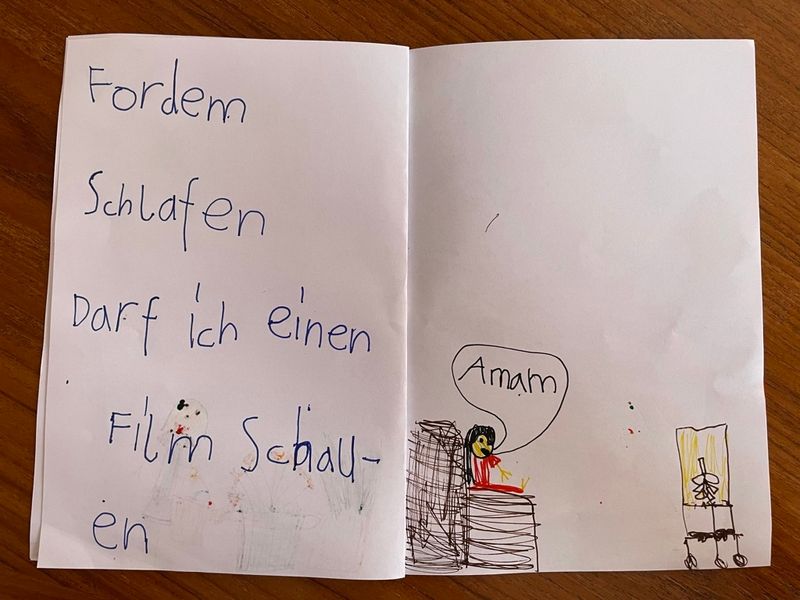 Fordem
Schlafen
Darf ich einen
Film Schau-
en
Amam